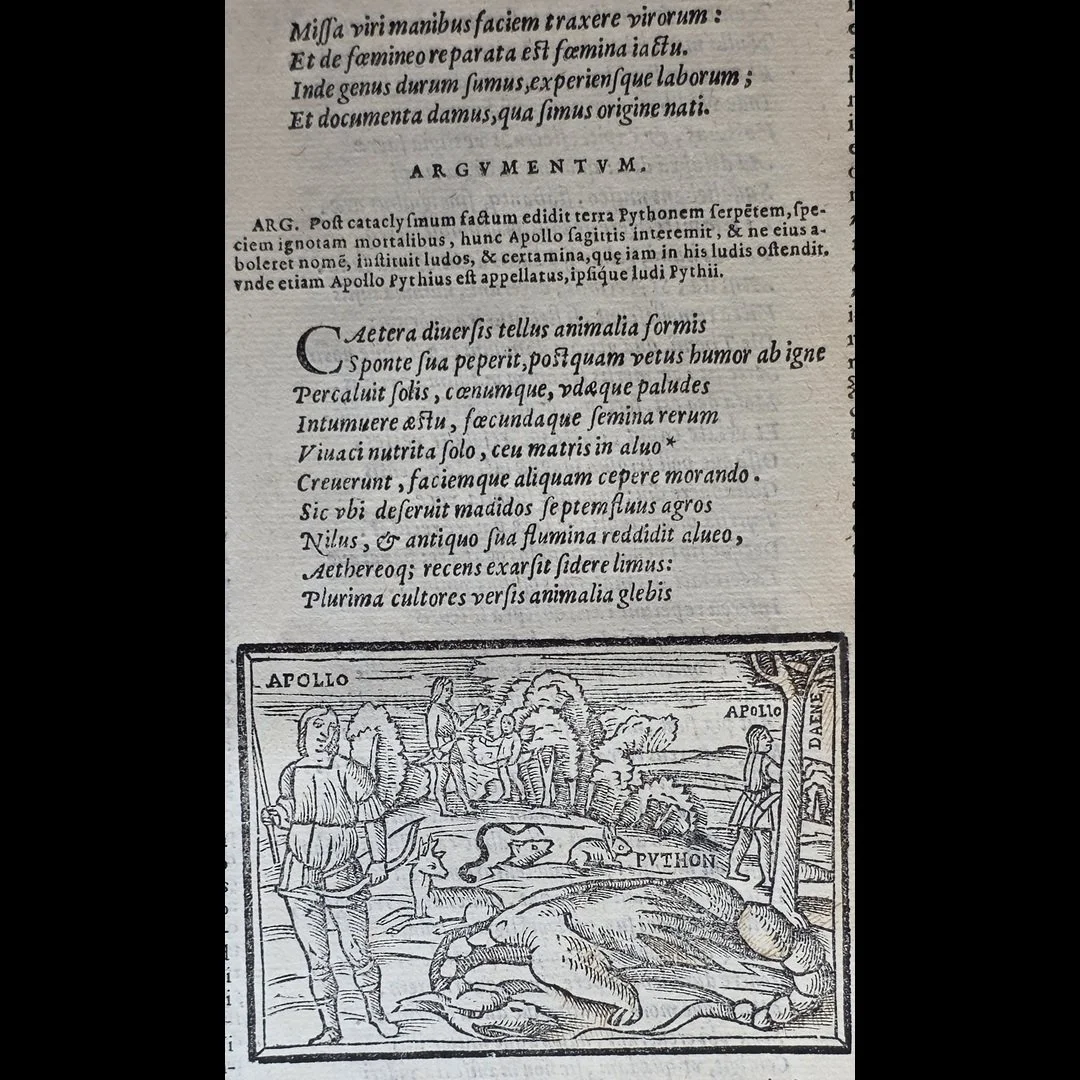 Miſſa viri manibus faciem traxere virorum :
Et de fœmineo reparata eſt fœmina iactu.
Inde genus durum ſumus, experienſque laborum ;
Et documenta damus, qua ſimus origine nati.
ARGVMENTVM.
ARG. Poſt cataclyſmum factum edidit terra Pythonem ſerpẽtem, ſpe-
ciem ignotam mortalibus, hunc Apollo ſagittis interemit, & ne eius a-
boleret nomẽ, inſtituit ludos, & certamina, quę iam in his ludis oſtendit.
vnde etiam Apollo Pythius eſt appellatus, ipſique ludi Pythii.
CAetera diuerſis tellus animalia formis
Sponte ſua peperit, poſtquam vetus humor ab igne
Percaluit ſolis, cœnumque, vdæque paludes
Intumuere æſtu, fœcundaque ſemina rerum
Viuaci nutrita ſolo, ceu matris in aluo*
Creuerunt, faciemque aliquam cepere morando.
Sic vbi deſeruit madidos ſeptemfluus agros
Nilus, & antiquo ſua flumina reddidit alueo,
Aethereoq; recens exarſit ſidere limus:
Plurima cultores verſis animalia glebis
APOLLO
APOLLO
DAENE
PVTHON